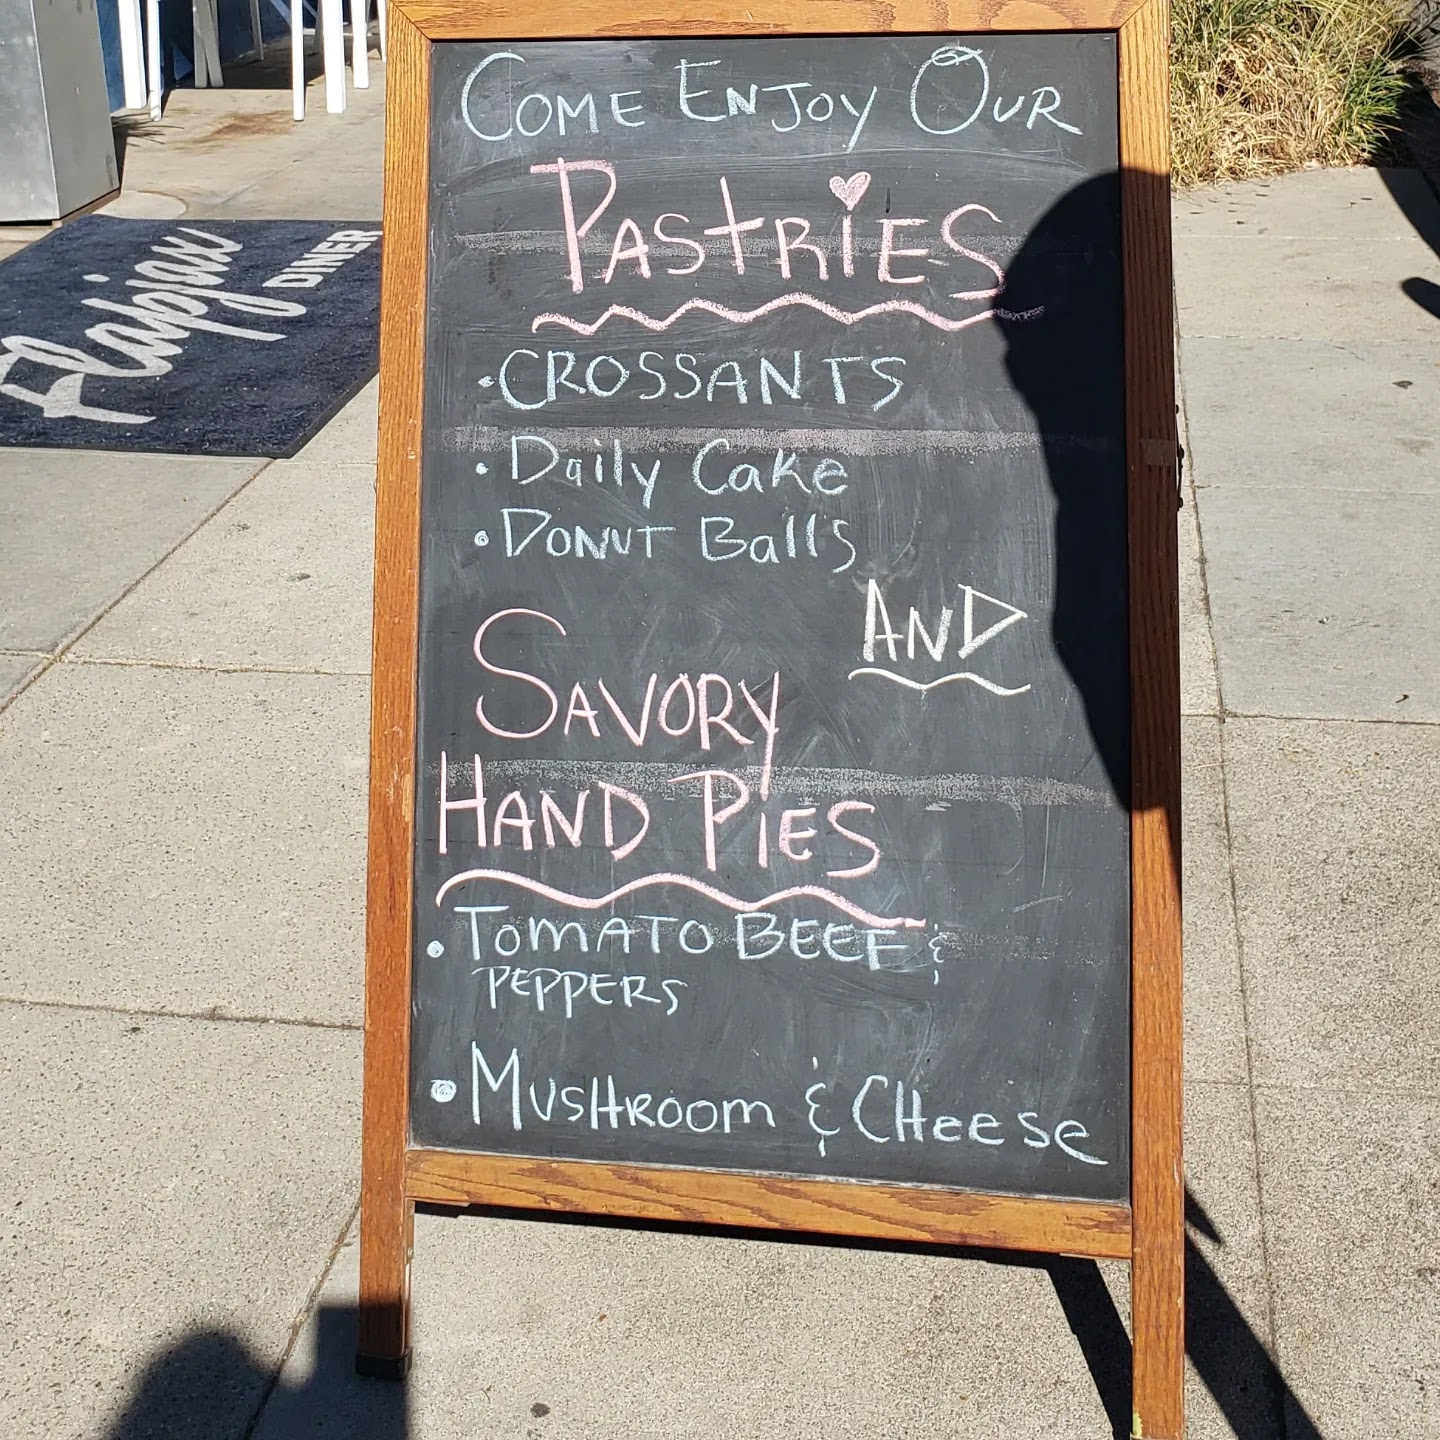 COME ENJOY OUR
PASTRIES
• CROSSANTS
• Daily Cake
• DONUT Balls
AND
SAVORY
HAND PIES
• TOMATO BEEF &
PEPPERS
• MUSHROOM & CHeese
Flapjax
DINER